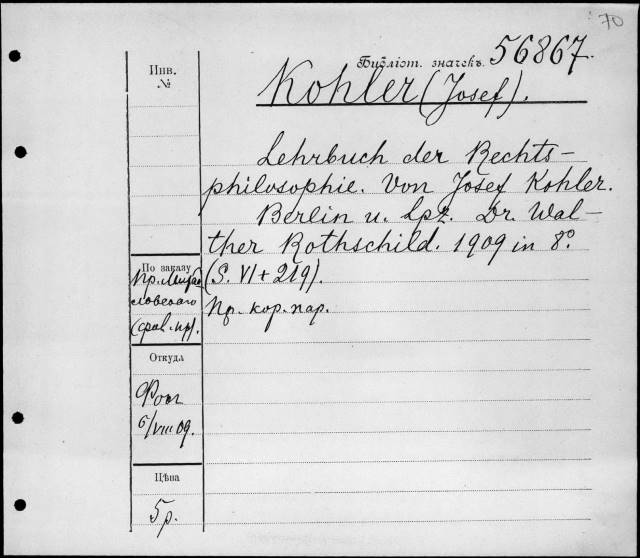 70
Библіот. значекъ. 56867.
Инв.
№
Kohler (Josef).
Lehrbuch der Rechts-
philosophie. Von Josef Kohler.
Berlin u. Lpz. Dr. Wal-
ther Rothschild. 1909 in 8°.
(S. VI + 219).
Пр. кор. пар.
По заказу
Пр.
Откуда
6/VIII 09.
Цѣна
5 р.